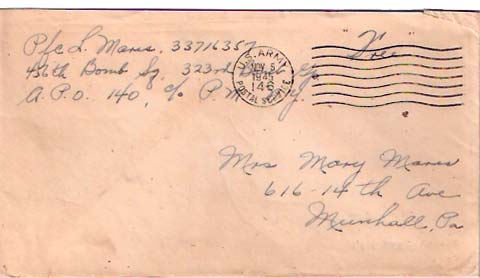 Pfc L. Mares, 33716357 "Free"
456th Bomb Sq. 323rd
A.P.O. 140, c/o P.M.
U.S. ARMY
NOV 5
146
POSTAL SERVICE
Mrs Mary Mares
616-14th Ave
Munhall, Pa